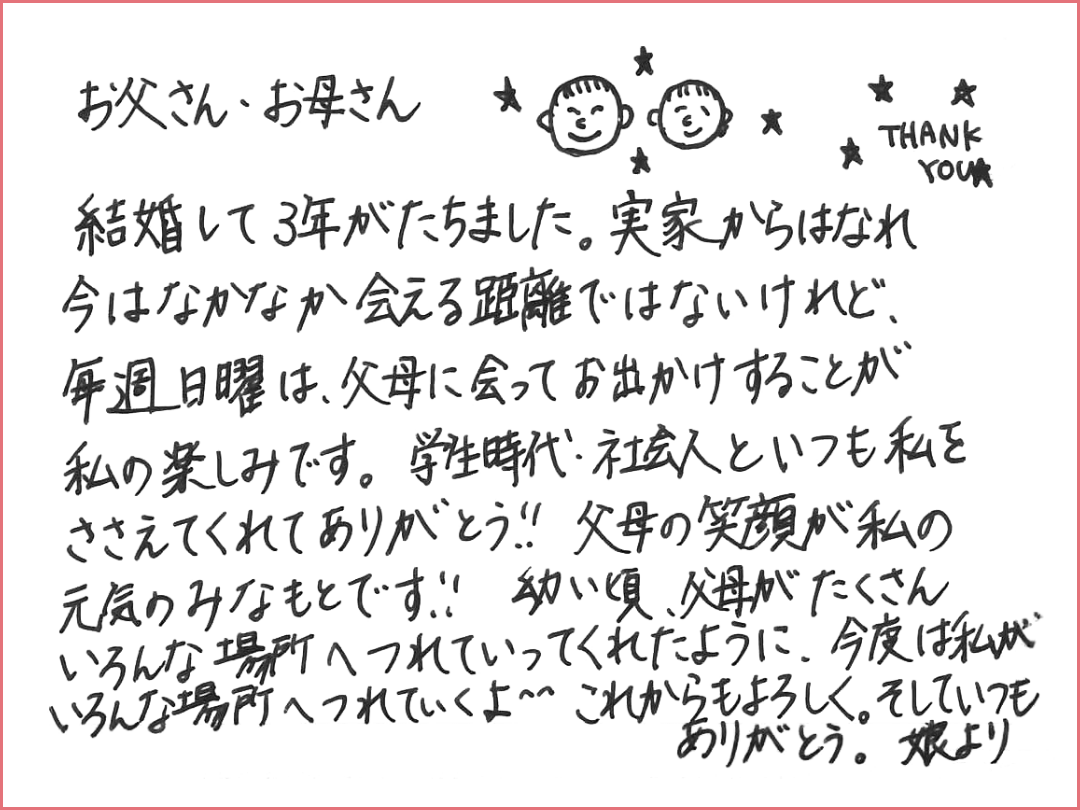 お父さん・お母さん
THANK
YOU
結婚して3年がたちました。実家からはなれ
今はなかなか会える距離ではないけれど、
毎週日曜は、父母に会ってお出かけすることが
私の楽しみです。学生時代・社会人といつも私を
ささえてくれてありがとう!!父母の笑顔が私の
元気のみなもとです!!幼い頃、父母がたくさん
いろんな場所へつれていってくれたように、今度は私が
いろんな場所へつれていくよ~~これからもよろしく。そしていつも
ありがとう。娘より